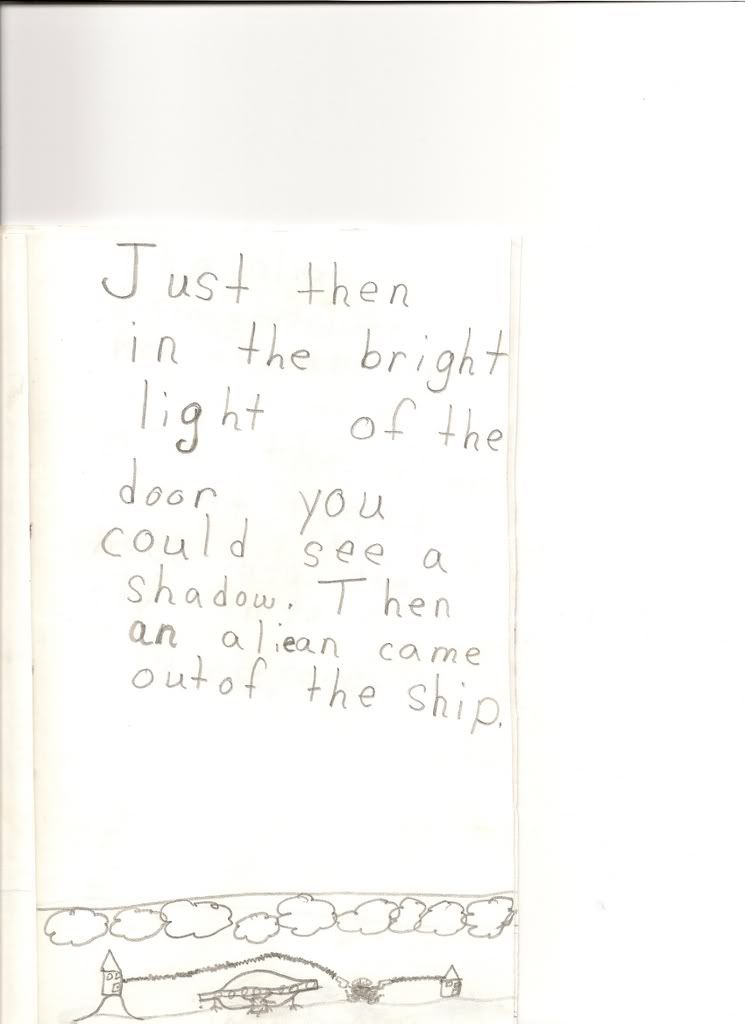 Just then
in the bright
light of the
door you
could see a
shadow. Then
an aliean came
out of the ship.